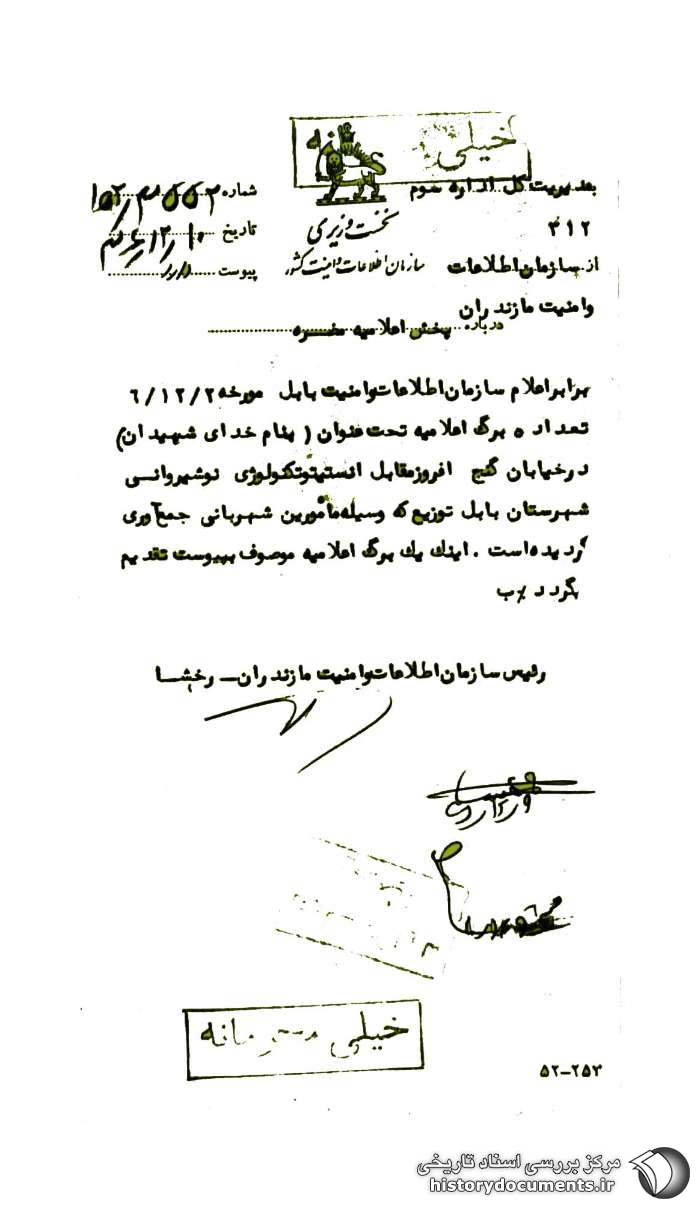 خیلی
بمدیریت کل اداره سوم
۳۱۲
از سازمان اطلاعات
وامنیت مازندران
نخست وزیری
سازمان اطلاعات و امنیت کشور
شماره
تاریخ
پیوست
درباره پخش اعلامیه مضره
برابر اعلام سازمان اطلاعات وامنیت بابل مورخه ۶/۱۲/۲
تعداد ۵ برگ اعلامیه تحت عنوان ( بنام خدای شهیدان)
در خیابان گنج افروز مقابل انستیتو تکنولوژی نوشیروانی
شهرستان بابل توزیع که وسیله مأمورین شهربانی جمع آوری
گردیده است . اینك یك برگ اعلامیه موصوف بپیوست تقدیم
بگردد ٪ب
رئیس سازمان اطلاعات وامنیت مازندران - رخشا
خیلی محرمانه
۵۲-۲۵۳
مرکز بررسی اسناد تاریخی
historydocuments.ir